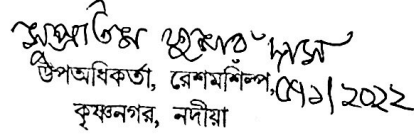 সুপ্রতিম কুমার দাস
উপঅধিকর্তা, রেশমশিল্প,
কৃষ্ণনগর, নদীয়া